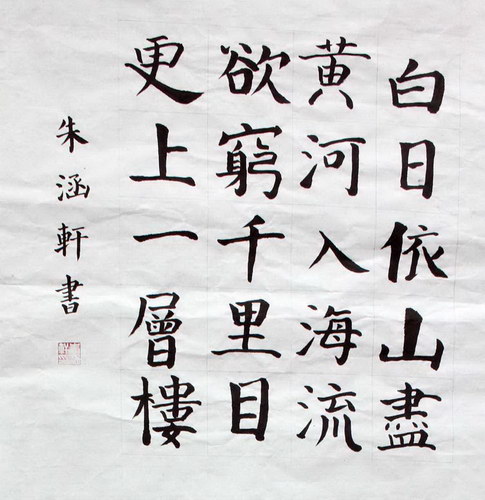 白日依山盡
黃河入海流
欲窮千里目
更上一層樓
朱涵軒書